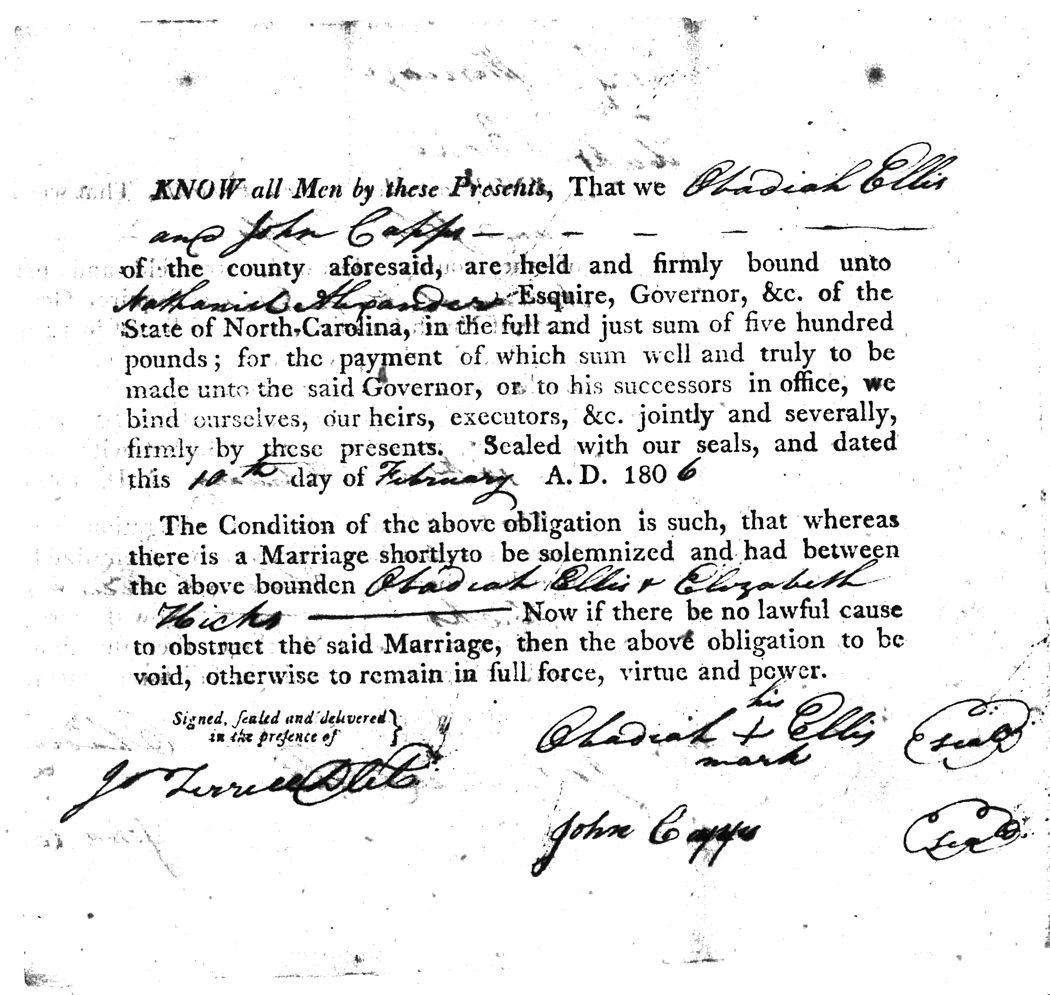 KNOW all Men by these Presents, That we Obadiah Ellis
and John Capps
of the county aforesaid, are held and firmly bound unto
Nathaniel Alexander Esquire, Governor, &c. of the
State of North-Carolina, in the full and just sum of five hundred
pounds; for the payment of which sum well and truly to be
made unto the said Governor, or to his successors in office, we
bind ourselves, our heirs, executors, &c. jointly and severally,
firmly by these presents. Sealed with our seals, and dated
this 10th day of February A. D. 1806
The Condition of the above obligation is such, that whereas
there is a Marriage shortly to be solemnized and had between
the above bounden Obadiah Ellis & Elizabeth
Hicks Now if there be no lawful cause
to obstruct the said Marriage, then the above obligation to be
void, otherwise to remain in full force, virtue and power.
Signed, sealed and delivered
in the presence of
his
Obadiah + Ellis seal
mark
Jo Terrell
John Capps seal